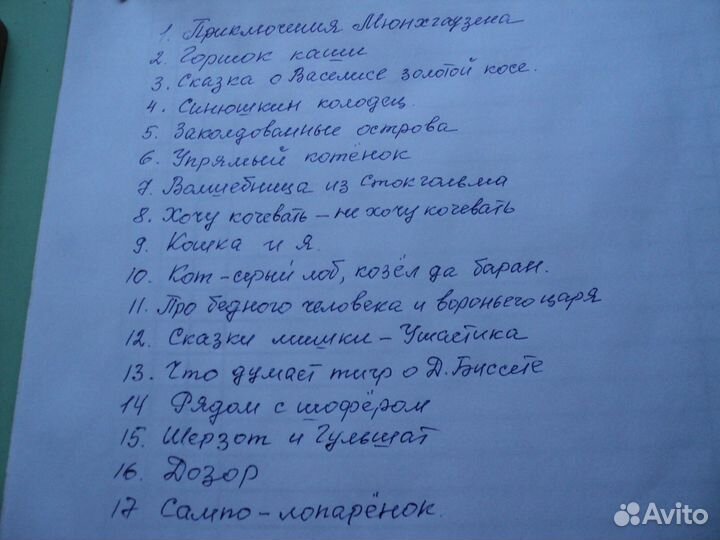 1. Приключения Мюнхгаузена
2. Горшок каши
3. Сказка о Василисе золотой косе.
4. Синюшкин колодец.
5. Заколдованные острова
6. Упрямый котёнок
7. Волшебница из Стокгольма
8. Хочу кочевать – не хочу кочевать
9. Кошка и я.
10. Кот-серый лоб, козёл да баран.
11. Про бедного человека и вороньего царя
12. Сказки мишки – Ушастика
13. Что думает тигр о Д. Биссете
14 Рядом с шофёром
15. Шерзот и Гульшат
16. Дозор
17 Сампо-лопарёнок.
Avito